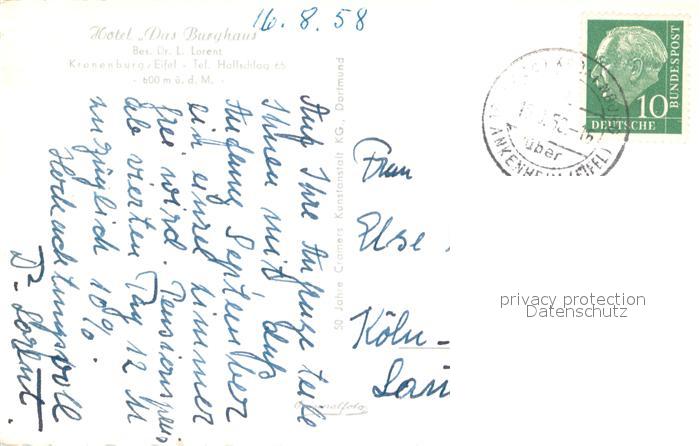 16.8.58
Hotel „Das Burghaus"
Bes. Dr. L. Lorent
Kronenburg/Eifel - Tel. Hallschlag 65
- 600 m ü. d. M. -
Auf Ihre Anfrage teile
Ihnen mit, daß
Anfang September
ein Einzelzimmer
frei wird. Pensionspreis
ab vierten Tag 12 M
zuzüglich 10%.
Hochachtungsvoll
Dr. Lorent.
50 Jahre Cramers Kunstanstalt KG., Dortmund
Originalfoto
Frau
Else
Köln-
DEUTSCHE
BUNDESPOST
10
über
BLANKENHEIM (EIFEL)
privacy protection
Datenschutz